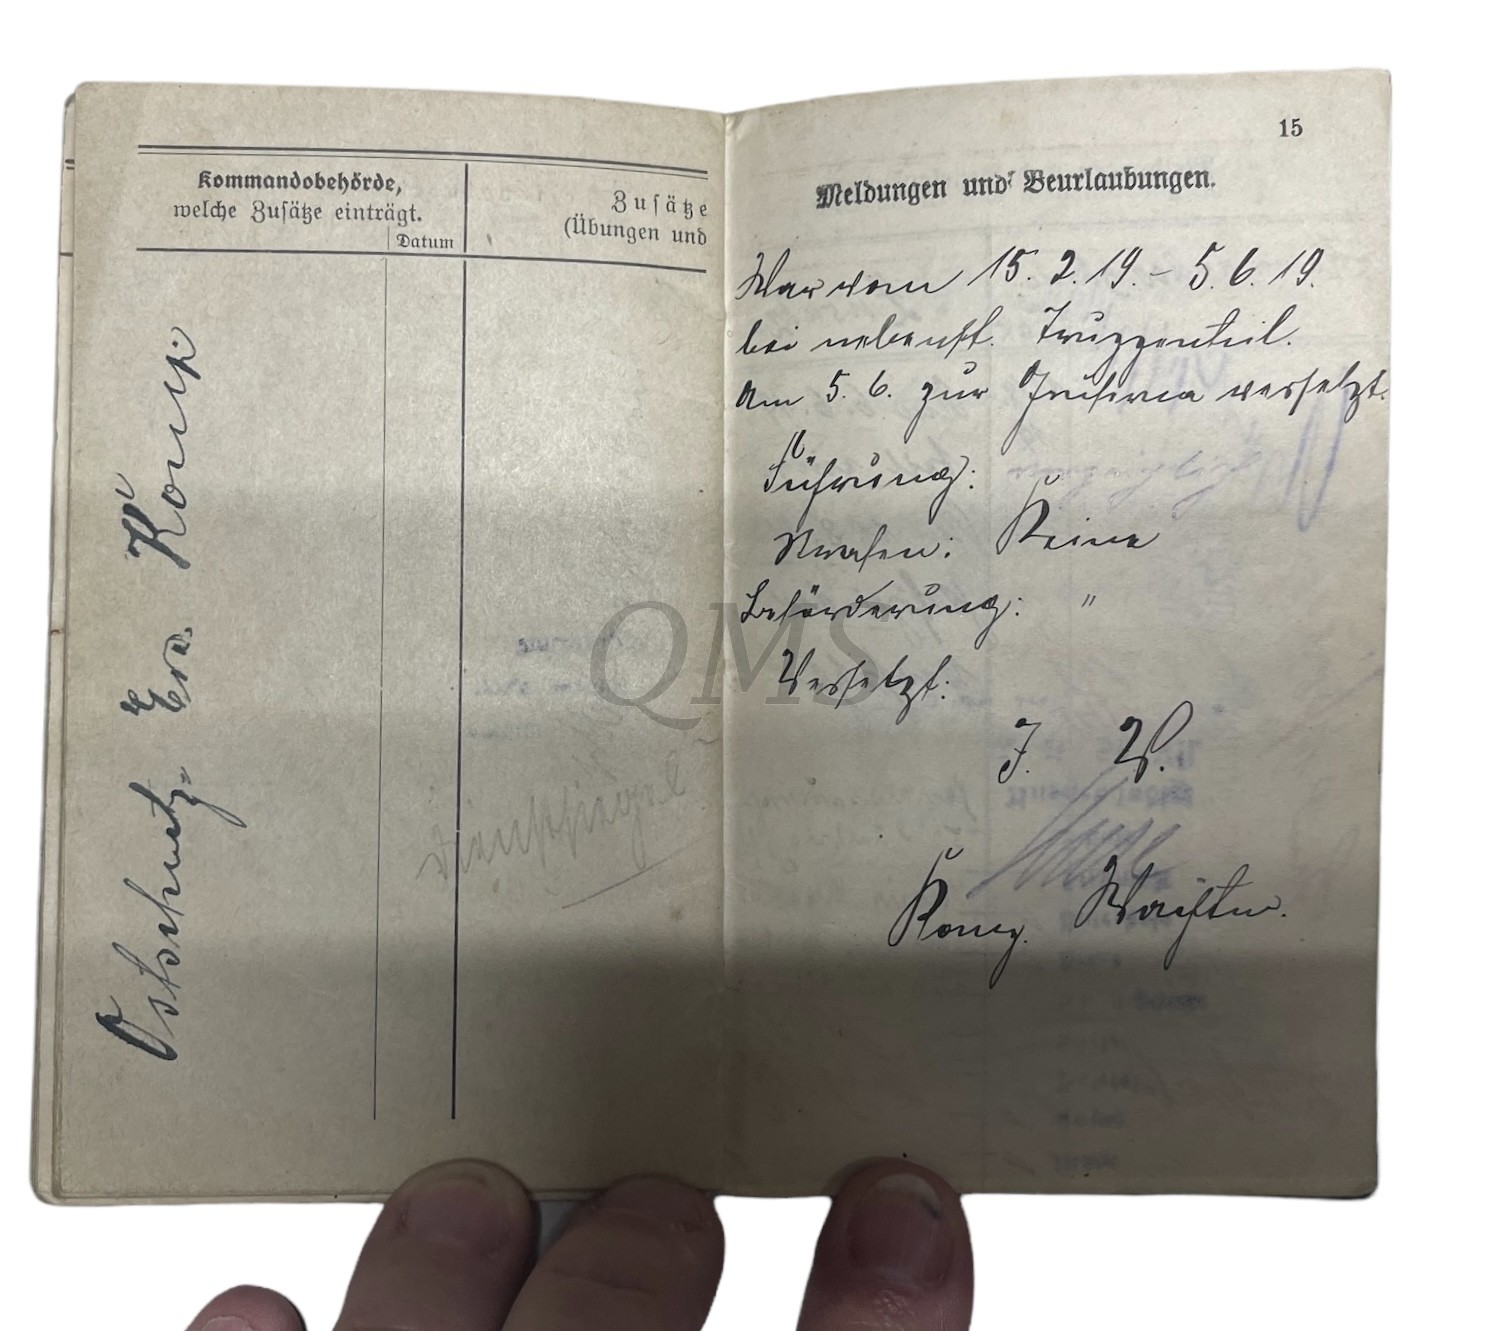 Kommandobehörde,
welche Zusätze einträgt.
Datum
Zusätze
(Übungen und
Ostschutz Ers.
Dienstsiegel
15
Meldungen und Beurlaubungen.
War vom 15. 2. 19. – 5. 6. 19.
bei nebenst. Truppenteil.
Am 5. 6. zur versetzt.
Führung:
Strafen: Keine
Beförderung: "
Versetzt:
J. V.
Wachtm.
QMS